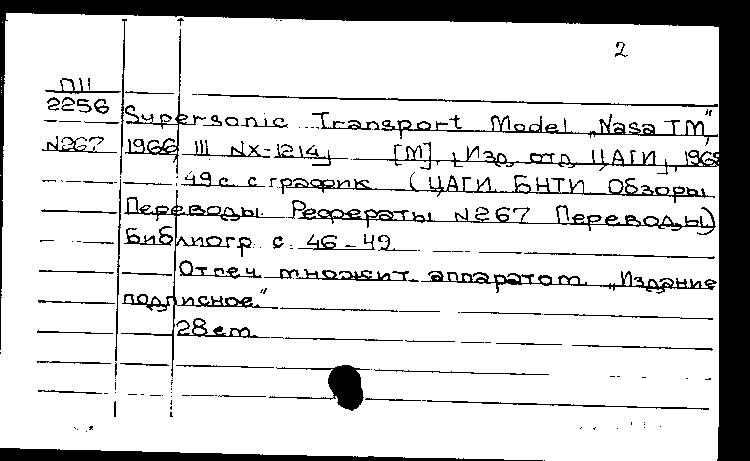 2
П11
2256 Supersonic Transport Model „Nasa TM,"
N267 1966, III NX-1214] [М]. [Изд. отд. ЦАГИ], 1968
49 с. с график. (ЦАГИ. БНТИ. Обзоры.
Переводы. Рефераты. N267 Переводы)
Библиогр. с. 46-49.
Отпеч. множит. аппаратом. „Издание
подписное."
28 см.